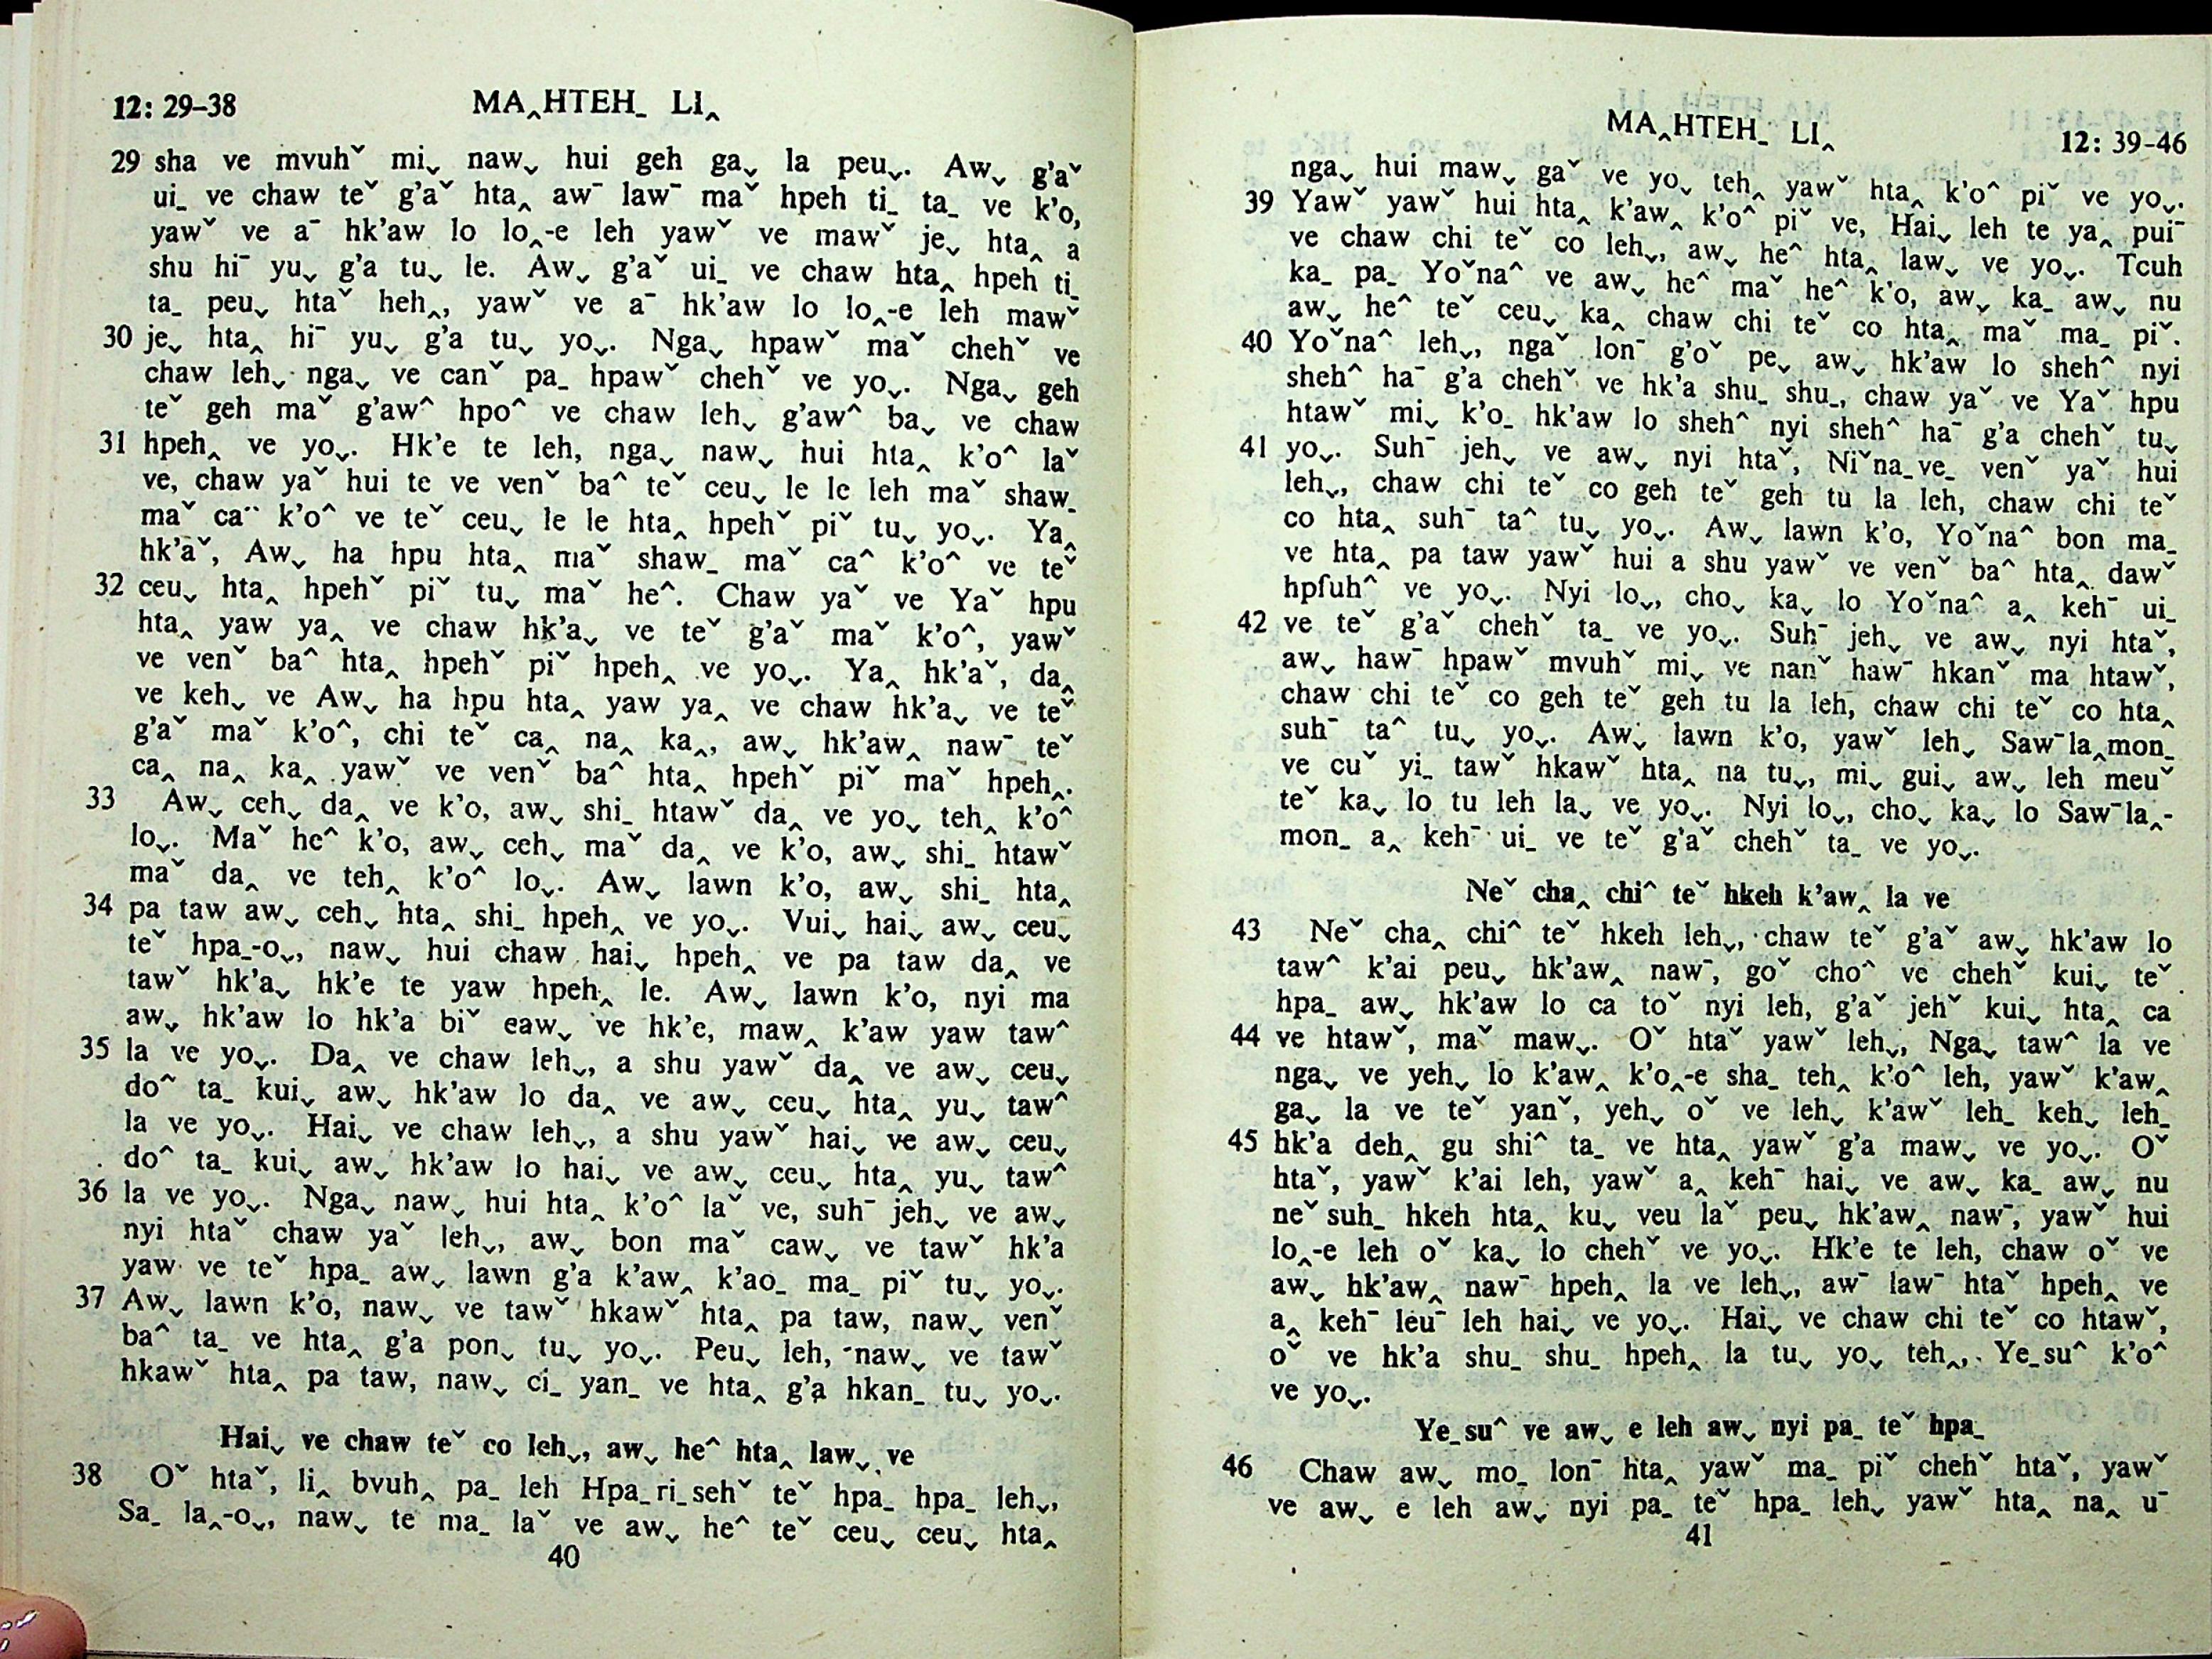 12: 29–38 MA‸HTEH_ LI‸
29 sha ve mvuhˇ mi˯ naw˯ hui geh ga˯ la peu˯. Aw˯ g'aˇ
ui_ ve chaw teˇ g'aˇ hta‸ awˉ lawˉ maˇ hpeh ti_ ta_ ve k'o,
yawˇ ve aˉ hk'aw lo lo‸-e leh yawˇ ve mawˇ je˯ hta‸ a
shu hiˉ yu˯ g'a tu˯ le. Aw˯ g'aˇ ui_ ve chaw hta‸ hpeh ti_
ta_ peu˯ htaˇ heh‸, yawˇ ve aˉ hk'aw lo lo‸-e leh mawˇ
30 je˯ hta‸ hiˉ yu˯ g'a tu˯ yo˯. Nga˯ hpawˇ maˇ chehˇ ve
chaw leh˯ nga˯ ve canˇ pa_ hpawˇ chehˇ ve yo˯. Nga˯ geh
teˇ geh maˇ g'awˆ hpoˆ ve chaw leh˯ g'awˆ ba˯ ve chaw
31 hpeh‸ ve yo˯. Hk'e te leh, nga˯ naw˯ hui hta‸ k'oˆ laˇ
ve, chaw yaˇ hui te ve venˇ baˆ teˇ ceu˯ le le leh maˇ shaw_
maˇ ca¨ k'oˆ ve teˇ ceu˯ le le hta‸ hpehˇ piˇ tu˯ yo˯. Ya‸
hk'aˇ, Aw˯ ha hpu hta‸ maˇ shaw_ maˇ caˆ k'oˆ ve teˇ
32 ceu˯ hta‸ hpehˇ piˇ tu˯ maˇ heˆ. Chaw yaˇ ve Yaˇ hpu
hta‸ yaw ya‸ ve chaw hk'a˯ ve teˇ g'aˇ maˇ k'oˆ, yawˇ
ve venˇ baˆ hta‸ hpehˇ piˇ hpeh‸ ve yo˯. Ya‸ hk'aˇ, da‸
ve keh˯ ve Aw˯ ha hpu hta‸ yaw ya‸ ve chaw hk'a˯ ve teˇ
g'aˇ maˇ k'oˆ, chi teˇ ca‸ na‸ ka‸, aw˯ hk'aw‸ nawˉ teˇ
ca‸ na‸ ka‸ yawˇ ve venˇ baˆ hta‸ hpehˇ piˇ maˇ hpeh‸.
33 Aw˯ ceh˯ da‸ ve k'o, aw˯ shi_ htawˇ da‸ ve yo˯ teh‸ k'oˆ
lo˯. Maˇ heˆ k'o, aw˯ ceh˯ maˇ da‸ ve k'o, aw˯ shi_ htawˇ
maˇ da‸ ve teh‸ k'oˆ lo˯. Aw˯ lawn k'o, aw˯ shi_ hta‸
34 pa taw aw˯ ceh˯ hta‸ shi_ hpeh‸ ve yo˯. Vui˯ hai˯ aw˯ ceu˯
teˇ hpa_-o˯, naw˯ hui chaw hai˯ hpeh‸ ve pa taw da‸ ve
tawˇ hk'a˯ hk'e te yaw hpeh‸ le. Aw˯ lawn k'o, nyi ma
aw˯ hk'aw lo hk'a biˇ eaw˯ ve hk'e, maw‸ k'aw yaw tawˆ
35 la ve yo˯. Da‸ ve chaw leh˯, a shu yawˇ da‸ ve aw˯ ceu˯
doˆ ta_ kui˯ aw˯ hk'aw lo da‸ ve aw˯ ceu˯ hta‸ yu˯ tawˆ
la ve yo˯. Hai˯ ve chaw leh˯, a shu yawˇ hai˯ ve aw˯ ceu˯
doˆ ta_ kui˯ aw˯ hk'aw lo hai˯ ve aw˯ ceu˯ hta‸ yu˯ tawˆ
36 la ve yo˯. Nga˯ naw˯ hui hta‸ k'oˆ laˇ ve, suhˉ jeh˯ ve aw˯
nyi htaˇ chaw yaˇ leh˯, aw˯ bon maˇ caw˯ ve tawˇ hk'a
yaw ve teˇ hpa_ aw˯ lawn g'a k'aw‸ k'ao_ ma_ piˇ tu˯ yo˯.
37 Aw˯ lawn k'o, naw˯ ve tawˇ hkawˇ hta‸ pa taw, naw˯ venˇ
baˆ ta_ ve hta‸ g'a pon˯ tu˯ yo˯. Peu˯ leh, naw˯ ve tawˇ
hkawˇ hta‸ pa taw, naw˯ ci_ yan_ ve hta‸ g'a hkan_ tu˯ yo˯.
Hai˯ ve chaw teˇ co leh˯, aw˯ heˆ hta‸ law˯ ve
38 Oˇ htaˇ, li‸ bvuh‸ pa_ leh Hpa_ri_sehˇ teˇ hpa_ hpa_ leh˯,
Sa_ la‸-o˯, naw˯ te ma_ laˇ ve aw˯ heˆ teˇ ceu˯ ceu˯ hta‸
40
MA‸HTEH_ LI‸ 12: 39-46
nga˯ hui maw˯ gaˇ ve yo˯ teh‸ yawˇ hta‸ k'oˆ piˇ ve yo˯.
39 Yawˇ yawˇ hui hta‸ k'aw‸ k'oˆ piˇ ve, Hai˯ leh te ya‸ puiˉ
ve chaw chi teˇ co leh˯, aw˯ heˆ hta‸ law˯ ve yo˯. Tcuh
ka_ pa_ Yoˇnaˆ ve aw˯ heˆ maˇ heˆ k'o, aw˯ ka_ aw˯ nu
aw˯ heˆ teˇ ceu˯ ka‸ chaw chi teˇ co hta‸ maˇ ma_ piˇ.
40 Yoˇnaˆ leh˯, ngaˇ lonˉ g'oˇ pe˯ aw˯ hk'aw lo shehˆ nyi
shehˆ haˉ g'a chehˇ ve hk'a shu_ shu_, chaw yaˇ ve Yaˇ hpu
htawˇ mi˯ k'o_ hk'aw lo shehˆ nyi shehˆ haˉ g'a chehˇ tu˯
41 yo˯. Suhˉ jeh˯ ve aw˯ nyi htaˇ, Niˇna_ve_ venˇ yaˇ hui
leh˯, chaw chi teˇ co geh teˇ geh tu la leh, chaw chi teˇ
co hta‸ suhˉ taˆ tu˯ yo˯. Aw˯ lawn k'o, Yoˇnaˆ bon ma_
ve hta‸ pa taw yawˇ hui a shu yawˇ ve venˇ baˆ hta‸ dawˇ
hpfuhˆ ve yo˯. Nyi lo˯, cho˯ ka˯ lo Yoˇnaˆ a‸ kehˉ ui_
42 ve teˇ g'aˇ chehˇ ta_ ve yo˯. Suhˉ jeh˯ ve aw˯ nyi htaˇ,
aw˯ hawˉ hpawˇ mvuhˇ mi˯ ve nanˇ hawˉ hkanˇ ma htawˇ,
chaw chi teˇ co geh teˇ geh tu la leh, chaw chi teˇ co hta‸
suhˉ taˆ tu˯ yo˯. Aw˯ lawn k'o, yawˇ leh˯ Sawˉla‸mon_
ve cuˇ yi_ tawˇ hkawˇ hta‸ na tu˯, mi˯ gui˯ aw˯ leh meuˇ
teˇ ka˯ lo tu leh la˯ ve yo˯. Nyi lo˯, cho˯ ka˯ lo Sawˉla‸-
mon_ a‸ kehˉ ui_ ve teˇ g'aˇ chehˇ ta_ ve yo˯.
Neˇ cha‸ chiˆ teˇ hkeh k'aw‸ la ve
43 Neˇ cha‸ chiˆ teˇ hkeh leh˯, chaw teˇ g'aˇ aw˯ hk'aw lo
tawˆ k'ai peu˯ hk'aw‸ nawˉ, goˇ choˆ ve chehˇ kui˯ teˇ
hpa_ aw˯ hk'aw lo ca toˇ nyi leh, g'aˇ jehˇ kui˯ hta‸ ca
44 ve htawˇ, maˇ maw˯. Oˇ htaˇ yawˇ leh˯, Nga˯ tawˆ la ve
nga˯ ve yeh˯ lo k'aw‸ k'o‸-e sha_ teh‸ k'oˆ leh, yawˇ k'aw‸
ga˯ la ve teˇ yanˇ, yeh˯ oˇ ve leh˯ k'awˇ leh_ keh˯ leh_
45 hk'a deh‸ gu shiˆ ta_ ve hta‸ yawˇ g'a maw˯ ve yo˯. Oˇ
htaˇ, yawˇ k'ai leh, yawˇ a‸ kehˉ hai˯ ve aw˯ ka_ aw˯ nu
neˇ suh_ hkeh hta‸ ku˯ veu laˇ peu˯ hk'aw‸ nawˉ, yawˇ hui
lo‸-e leh oˇ ka˯ lo chehˇ ve yo˯. Hk'e te leh, chaw oˇ ve
aw˯ hk'aw‸ nawˉ hpeh‸ la ve leh˯, awˉ lawˉ htaˇ hpeh‸ ve
a‸ kehˉ leuˉ leh hai˯ ve yo˯. Hai˯ ve chaw chi teˇ co htawˇ,
oˇ ve hk'a shu_ shu_ hpeh‸ la tu˯ yo˯ teh‸, Ye_suˆ k'oˆ
ve yo˯.
Ye_suˆ ve aw˯ e leh aw˯ nyi pa_ teˇ hpa_
46 Chaw aw˯ mo_ lonˉ hta‸ yawˇ ma_ piˇ chehˇ htaˇ, yawˇ
ve aw˯ e leh aw˯ nyi pa_ teˇ hpa_ leh˯ yawˇ hta‸ na‸ uˉ
41